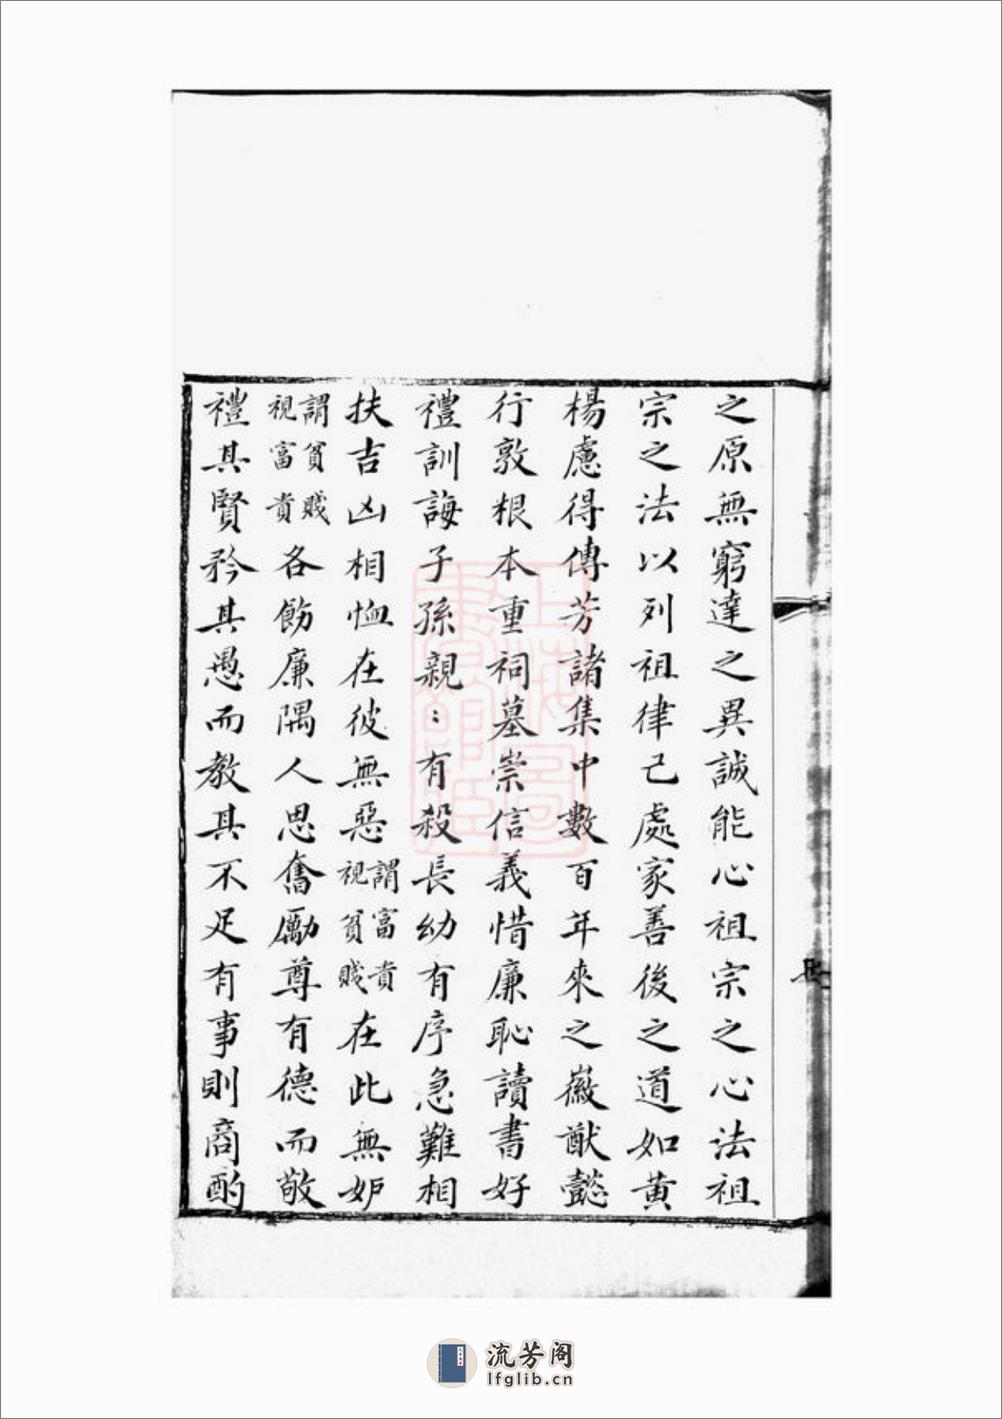 之原無窮達之異誠能心祖宗之心法祖
宗之法以列祖律己處家善後之道如黃
楊慮得傳芳諸集中數百年來之徽猷懿
行敦根本重祠墓崇信義惜廉恥讀書好
禮訓誨子孫親〻有殺長幼有序急難相
扶吉凶相恤在彼無惡謂富貴視貧賤在此無妒
謂貧賤視富貴各飭廉隅人思奮勵尊有德而敬
禮其賢矜其愚而教其不足有事則商酌
上海圖書館藏
流芳阁
lfglib.cn